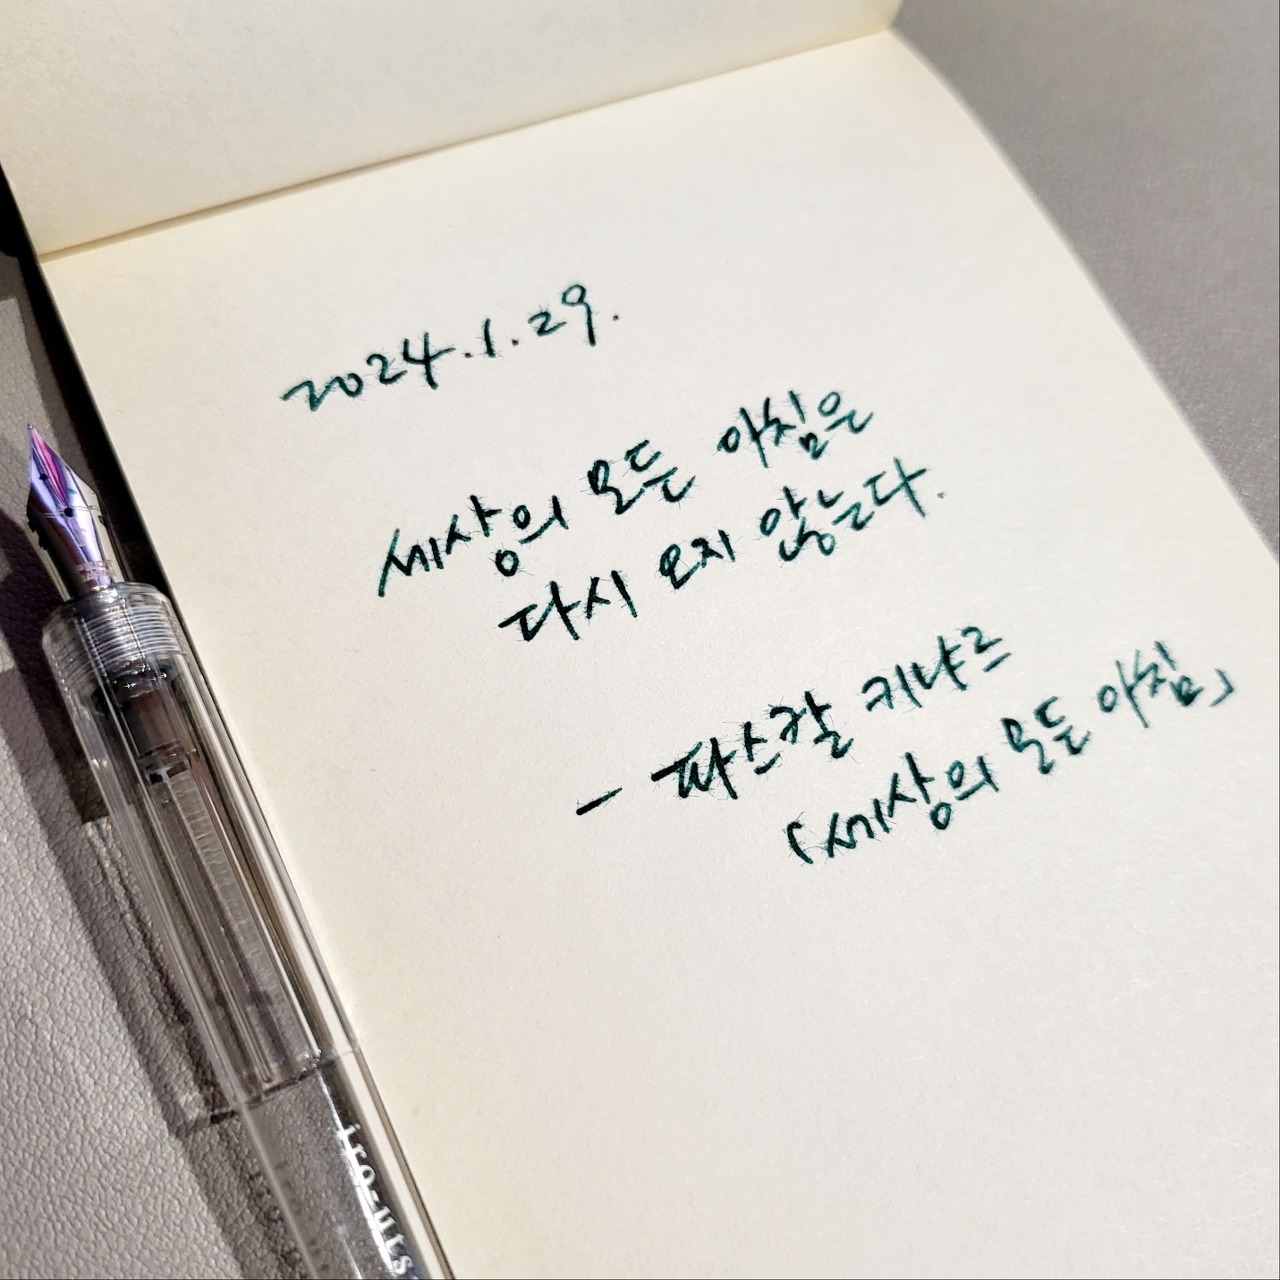 2024.1.29.
세상의 모든 아침은
다시 오지 않는다.
- 파스칼 키냐르
「세상의 모든 아침」
iro-utsi